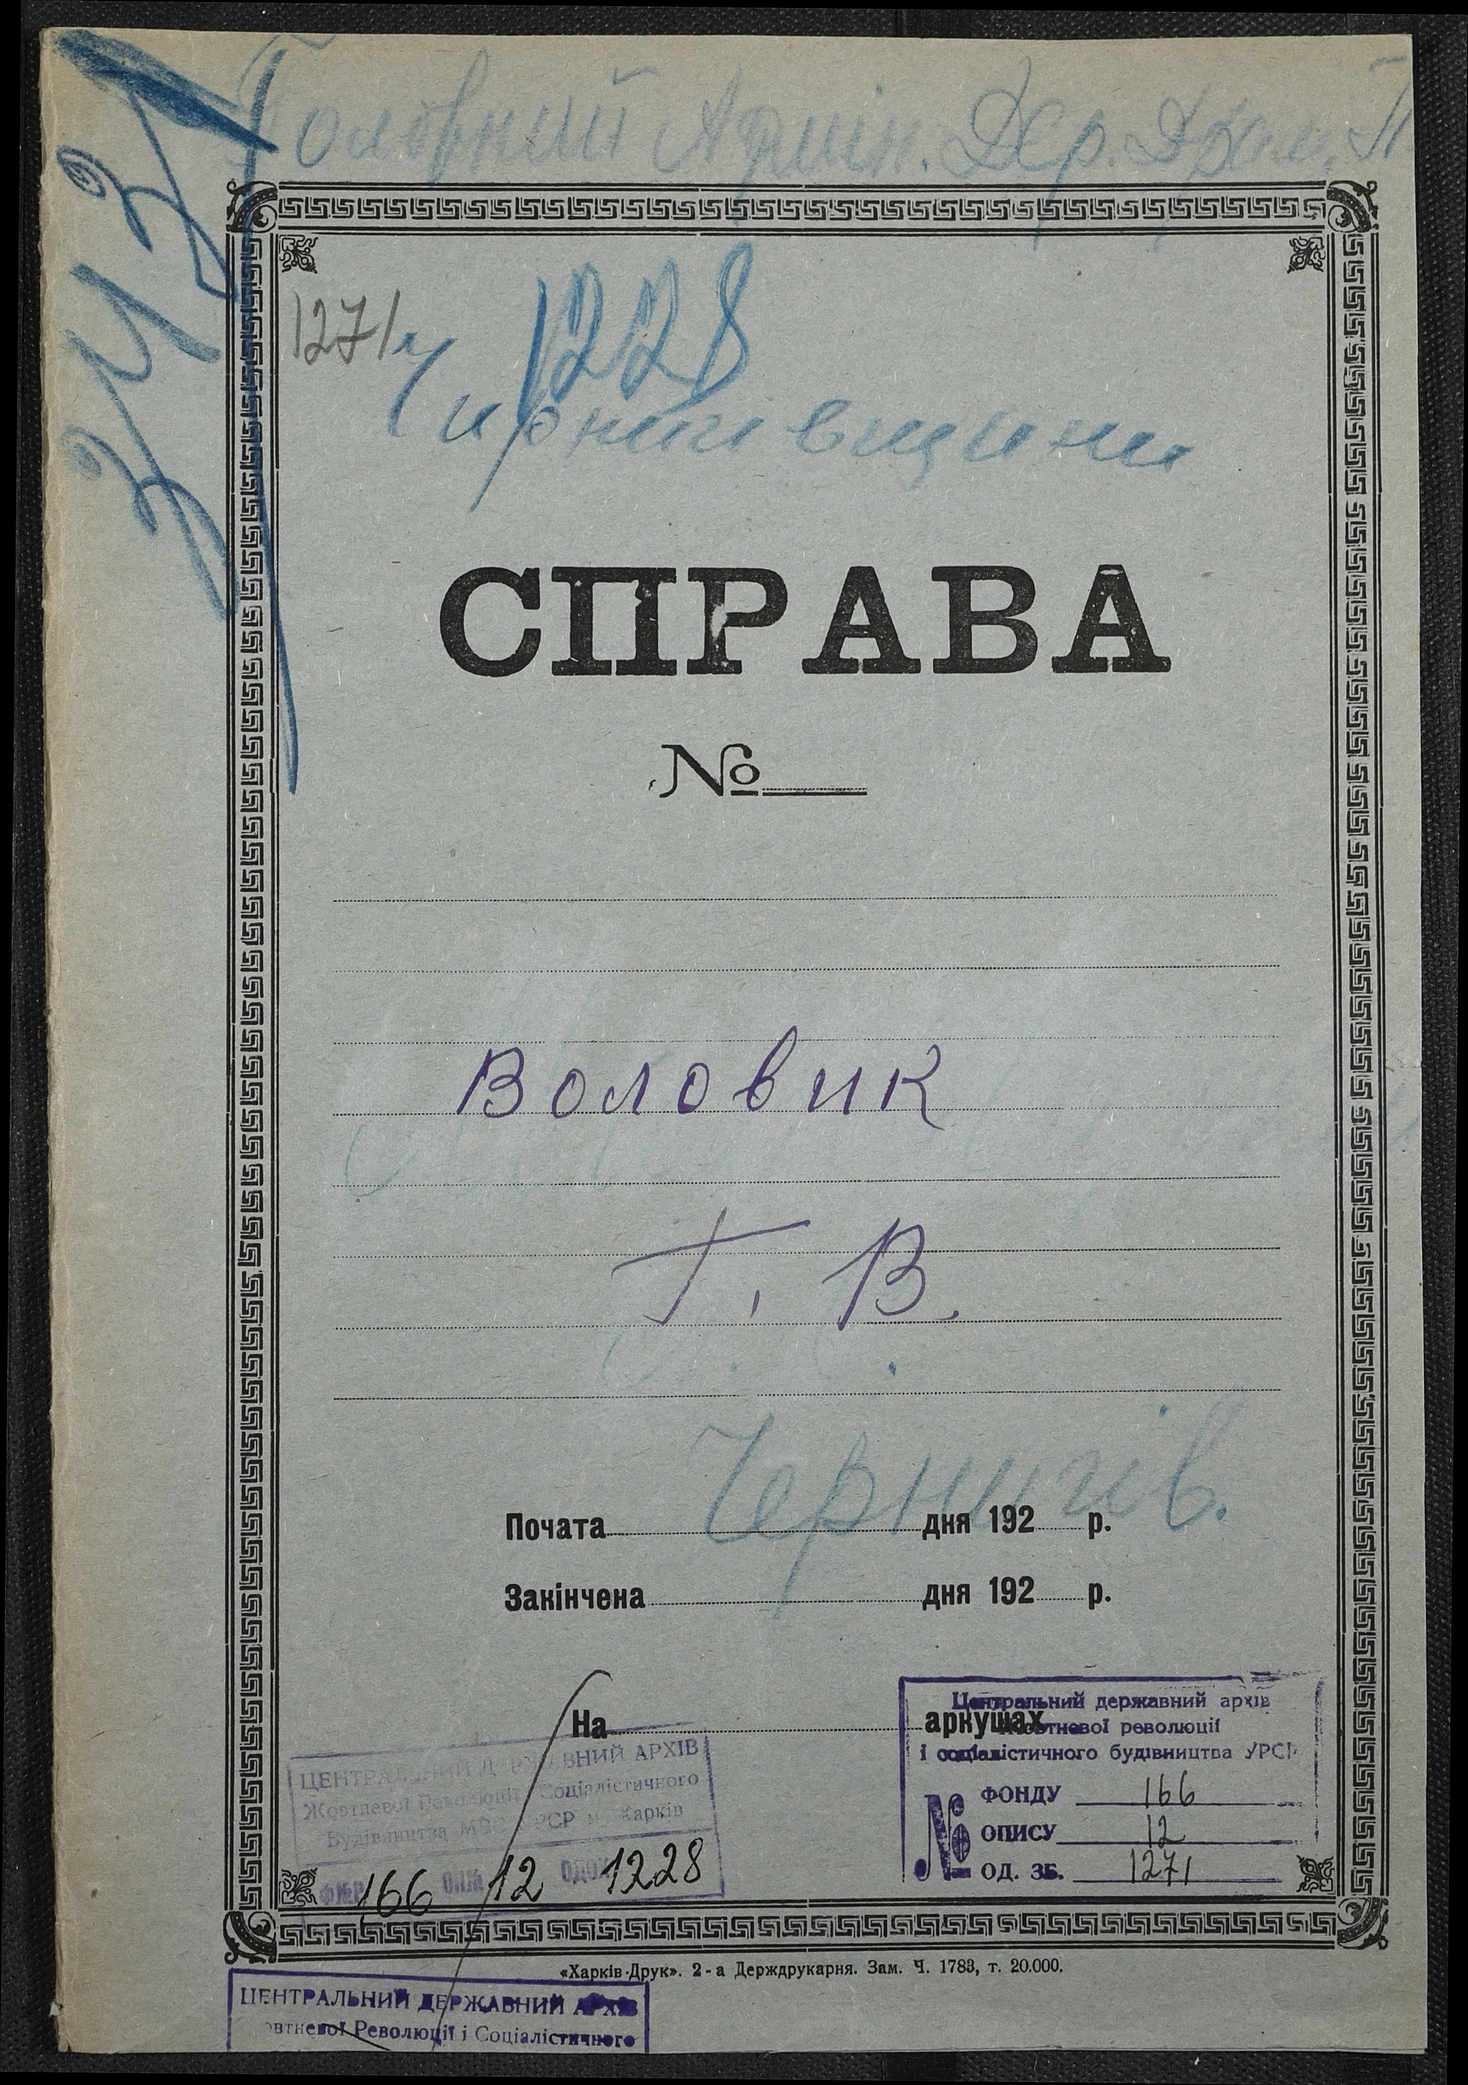 Головний
1271
1228
СПРАВА
№
Воловик
Г. В.
Чернигів.
Почата дня 192 р.
Закінчена дня 192 р.
На аркушах
Центральний державний архів
Жовтневої революції
і соціалістичного будівництва УРСР
№
ФОНДУ 166
ОПИСУ 12
ОД. ЗБ. 1271
ЦЕНТРАЛЬНИЙ ДЕРЖАВНИЙ АРХІВ
Жовтневої Революції Соціалістичного
Будівництва УРСР м. Харків
166 12 1228
«Харків-Друк». 2-а Держдрукарня. Зам. Ч. 1783, т. 20.000.
ЦЕНТРАЛЬНИЙ ДЕРЖАВНИЙ АРХІВ
овтневої Революції і Соціалістичного